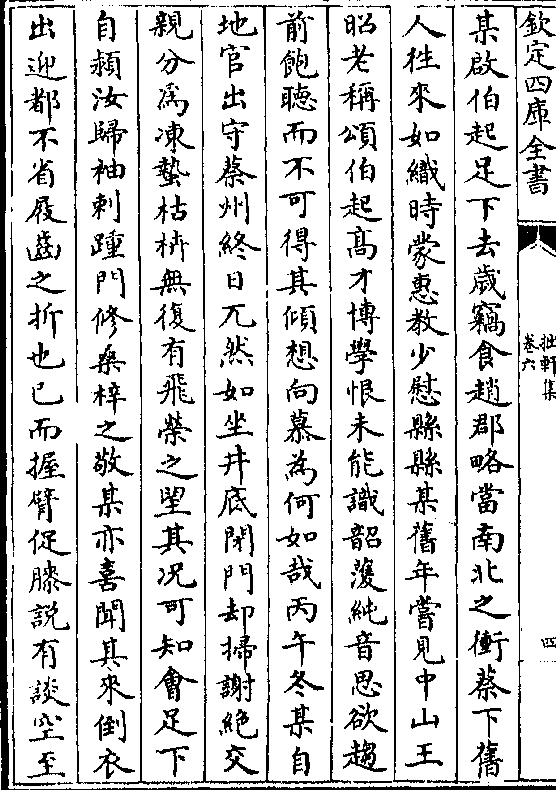 欽定四庫全書
拙軒集
卷六
四
某啟伯起足下去歲竊食趙郡略當南北之衝蔡下舊
人徃來如織時蒙惠教少慰縣縣某舊年嘗見中山王
昭老稱頌伯起髙才博學恨未能識韶頀純音思欲趨
前飽聽而不可得其傾想向慕為何如哉丙午冬某自
地官出守蔡州終日兀然如坐井底閉門却掃謝絶交
親分爲凍蟄枯枿無復有飛榮之望其况可知會足下
自潁汝歸袖刺踵門修桑梓之敬某亦喜聞其來倒衣
出迎都不省屐齒之折也已而握臂促膝説有談空至